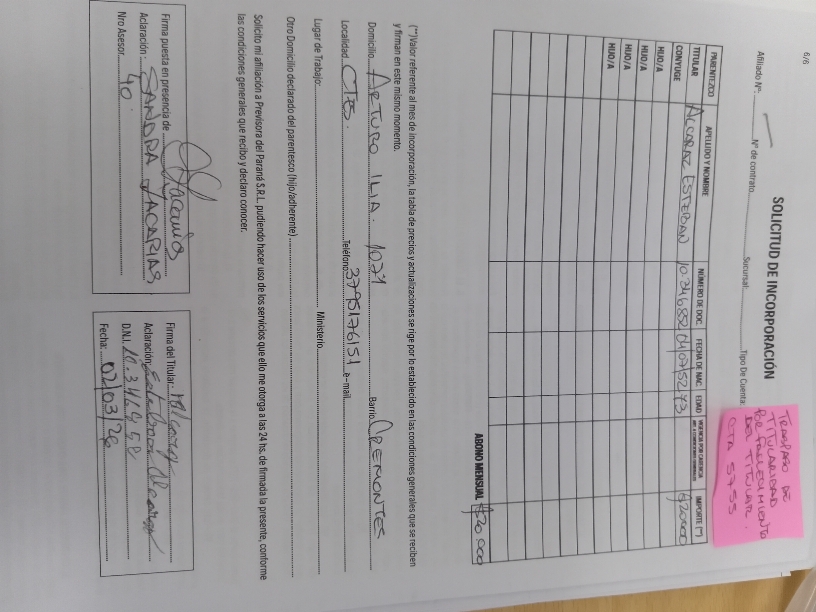 6/6
SOLICITUD DE INCORPORACIÓN
Afiliado Nº: Nº de contrato Sucursal: Tipo De Cuenta:
TRASPASO DE
TITULARIDAD
POR FALLECIMIENTO
DEL TITULAR.
CTA 5755
PARENTEZCO APELLIDO Y NOMBRE NÚMERO DE DOC. FECHA DE NAC. EDAD VIGENCIA POR CARENCIA IMPORTE (**)
TITULAR ALCARAZ ESTEBAN 10346852 04/07/52 73 $20.000
CONYUGE
HIJO/A
HIJO/A
HIJO/A
HIJO/A
ABONO MENSUAL $20.000
(**)Valor referente al mes de incorporación, la tabla de precios y actualizaciones se rige por lo establecido en las condiciones generales que se reciben
y firman en este mismo momento.
Domicilio ARTURO ILIA. 1071 Barrio CREMONTES
Localidad CTES. Teléfono 3795176151 e-mail
Lugar de Trabajo: Ministerio
Otro Domicilio declarado del parentesco (hijo/adherente)
Solicito mi afiliación a Previsora del Paraná S.R.L. pudiendo hacer uso de los servicios que ello me otorga a las 24 hs. de firmada la presente, conforme
las condiciones generales que recibo y declaro conocer.
Firma puesta en presencia de
Aclaración: SANDRA ZACARIAS
Nro Asesor: 40.
Firma del Titular: Alcaraz
Aclaración: Esteban Alcaraz
D.N.I.
Fecha: 02/03/26